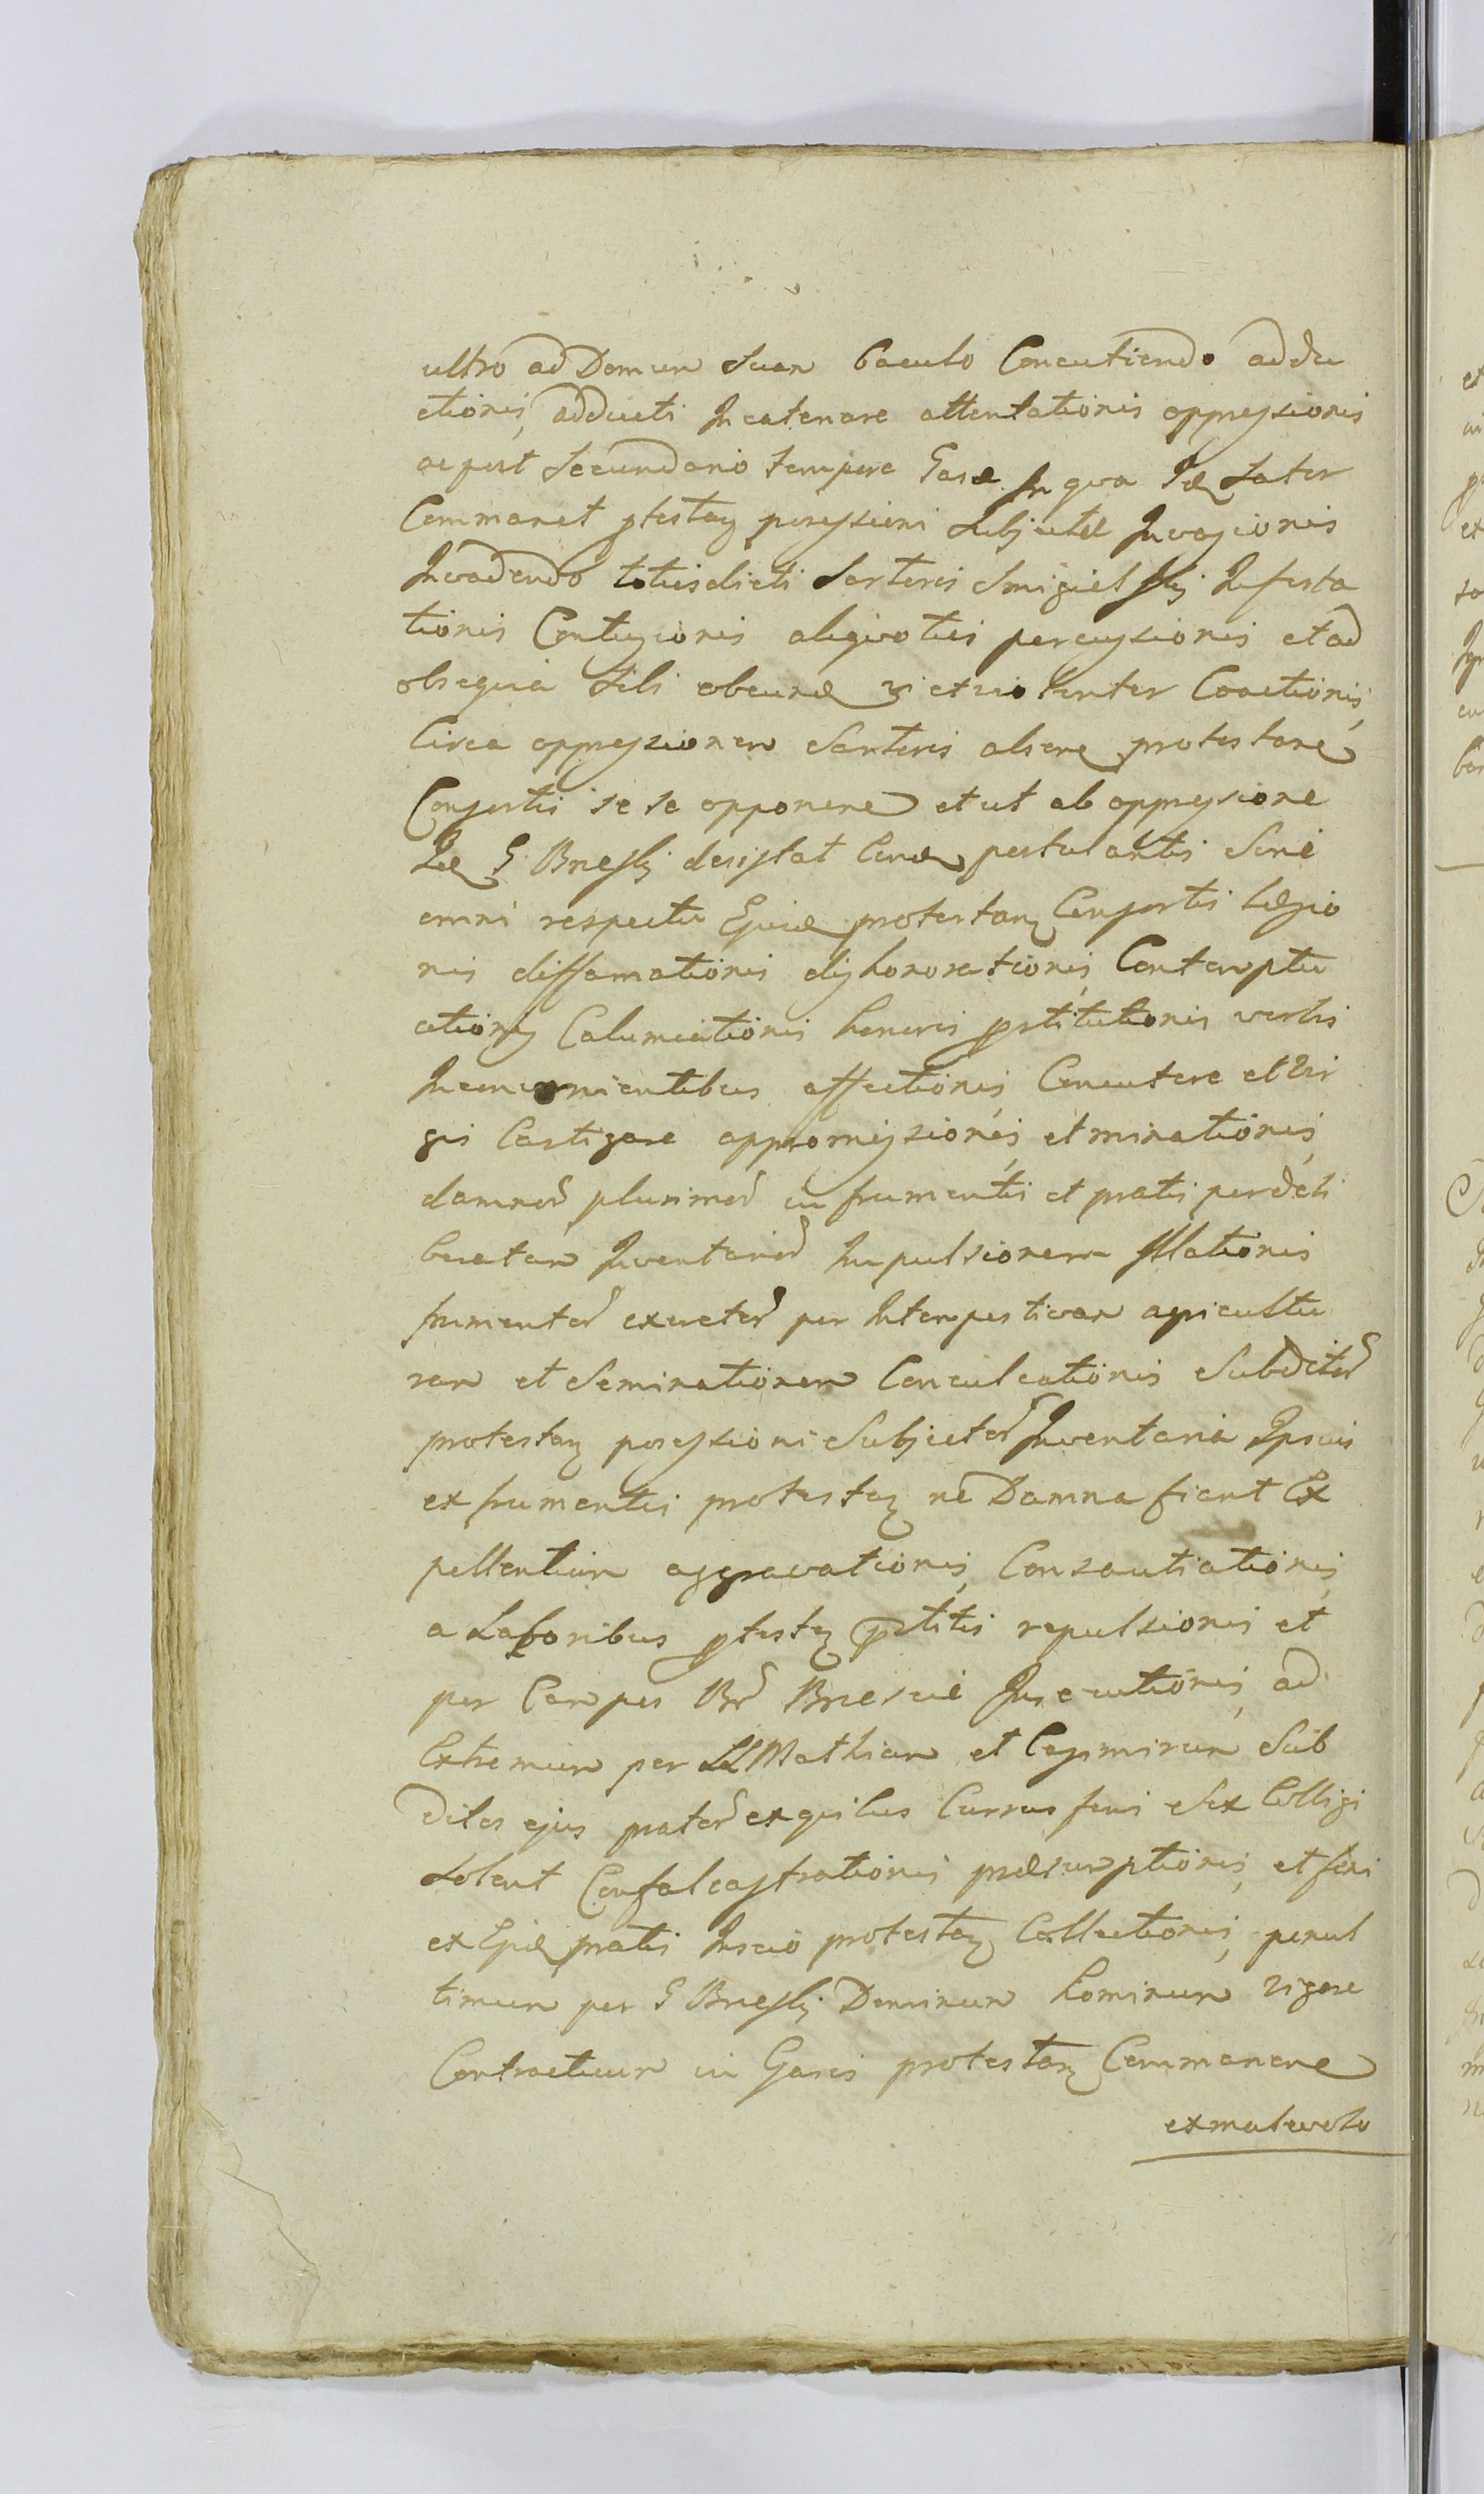 ultro ad Domum Suam baculo Concutiendo addu
ctionis, adducti Incatenare attentationis oppressionis
ac post Secundario tempore Gasæ In qva Idem Sutor
Commanet ptestan possessioni Subjectæ Invasionis
Invadendo totiesdicti Sartoris Smigielski Infesta
tionis Contusionis aliqvoties percussionis et ad
obsequia Sibi obeunda vi et violenter Coactionis,
Circa oppressionem Sartoris absene protestane
Consortis se se opponene et ut ab oppressione
Idem G Brzeski desistat Coram postulantis Sine
omni respectu Ejusdem protestan Consortis Læsio
nis diffamationis dishonorationis, Contemptu
ationis Calumniationis honoris pstitutionis verbis
Inconvenientibus affectionis Concutere et Vir
gis Castigare appromissionis, et minationis,
damnor plurimor in frumentis et pratis per debi
 Inventarior Impulsionem Illationis
frumentor exuctor per Intempestivam agricultu
ram et Seminationem Conculcationis Subditor
protestan possessioni Subjector Inventaria Ipsius
ex frumentis protestan ne Damna fiant Ex
pellentium aggravationis, Consautiationis,
a Laboribus ptestan pstitis repulsionis et
per Campos Br Brzescie Insecutionis, ad
Extremum per LL Mathiam et Casimirum Sub
ditos ejus prator ex quibus Currus feni Sex Colligi
Solent Confalcastrationis præsumptionis, et feni
ex Ejusdem pratis Inscio protestan Collectionis, penul
timum per G Brzeski Dominum hominum vigore
Contractuum in Gasis protestan Commanene
ex malevolo